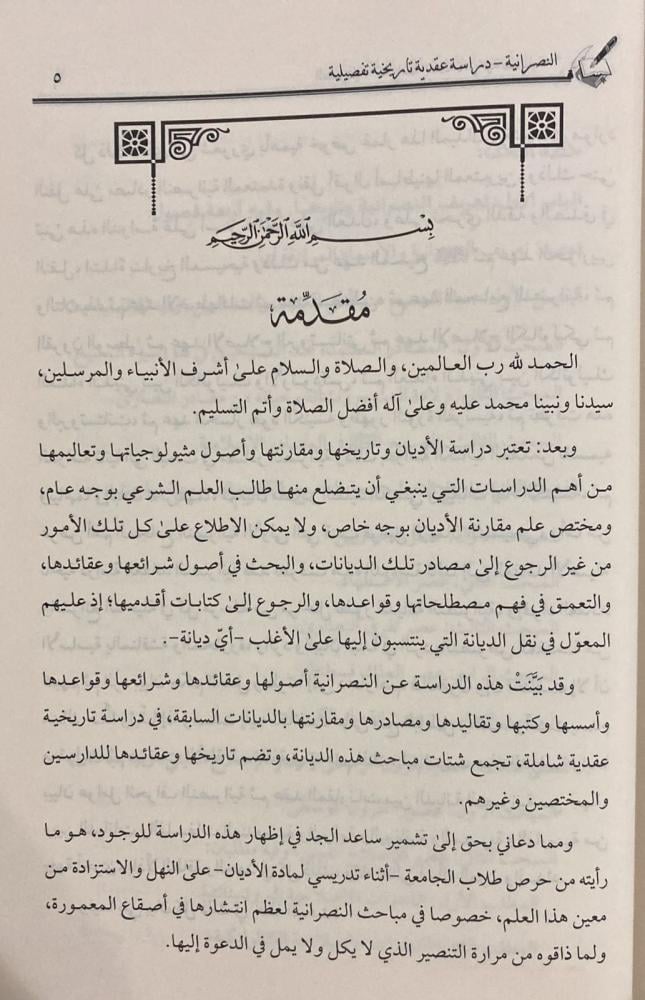 النصرانية - دراسة عقدية تاريخية تفصيلية
٥
بسم الله الرحمن الرحيم
مُقدِّمة
الحمد لله رب العالمين، والصلاة والسلام علىٰ أشرف الأنبياء والمرسلين،
سيدنا ونبينا محمد عليه وعلىٰ آله أفضل الصلاة وأتم التسليم.
وبعد: تعتبر دراسة الأديان وتاريخها ومقارنتها وأصول مثيولوجياتها وتعاليمها
من أهم الدراسات التي ينبغي أن يتضلع منها طالب العلم الشرعي بوجه عام،
ومختص علم مقارنة الأديان بوجه خاص، ولا يمكن الاطلاع علىٰ كل تلك الأمور
من غير الرجوع إلىٰ مصادر تلك الديانات، والبحث في أصول شرائعها وعقائدها،
والتعمق في فهم مصطلحاتها وقواعدها، والرجوع إلىٰ كتابات أقدميها؛ إذ عليهم
المعوّل في نقل الديانة التي ينتسبون إليها علىٰ الأغلب -أيّ ديانة-.
وقد بَيَّنَتْ هذه الدراسة عن النصرانية أصولها وعقائدها وشرائعها وقواعدها
وأسسها وكتبها وتقاليدها ومصادرها ومقارنتها بالديانات السابقة، في دراسة تاريخية
عقدية شاملة، تجمع شتات مباحث هذه الديانة، وتضم تاريخها وعقائدها للدارسين
والمختصين وغيرهم.
ومما دعاني بحق إلىٰ تشمير ساعد الجد في إظهار هذه الدراسة للوجود، هو ما
رأيته من حرص طلاب الجامعة -أثناء تدريسي لمادة الأديان- علىٰ النهل والاستزادة من
معين هذا العلم، خصوصا في مباحث النصرانية لعظم انتشارها في أصقاع المعمورة،
ولما ذاقوه من مرارة التنصير الذي لا يكل ولا يمل في الدعوة إليها.